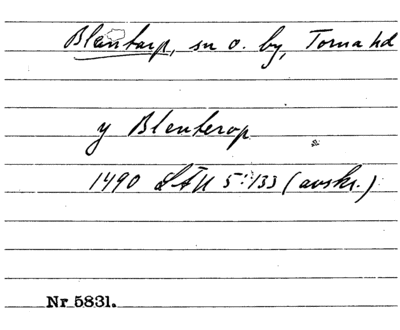 Blentarp, sn o. by, Torna hd
y Blenterop
1490 LÅU 5:133 (avskr.)
Nr 5831.